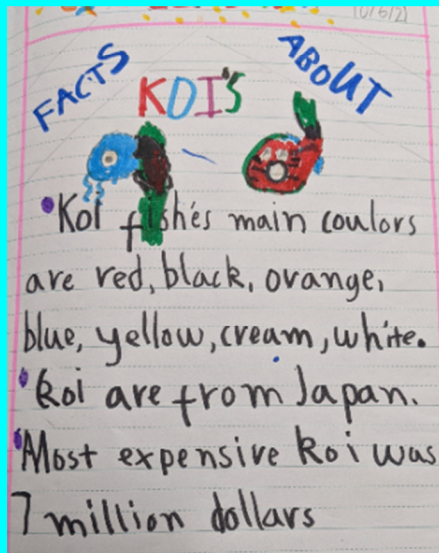 10/6/21
FACTS ABOUT
KOI'S
•Koi fishés main coulors
are red, black, orange,
blue, yellow, cream, white.
•koi are from Japan.
•Most expensive koi was
7 million dollars